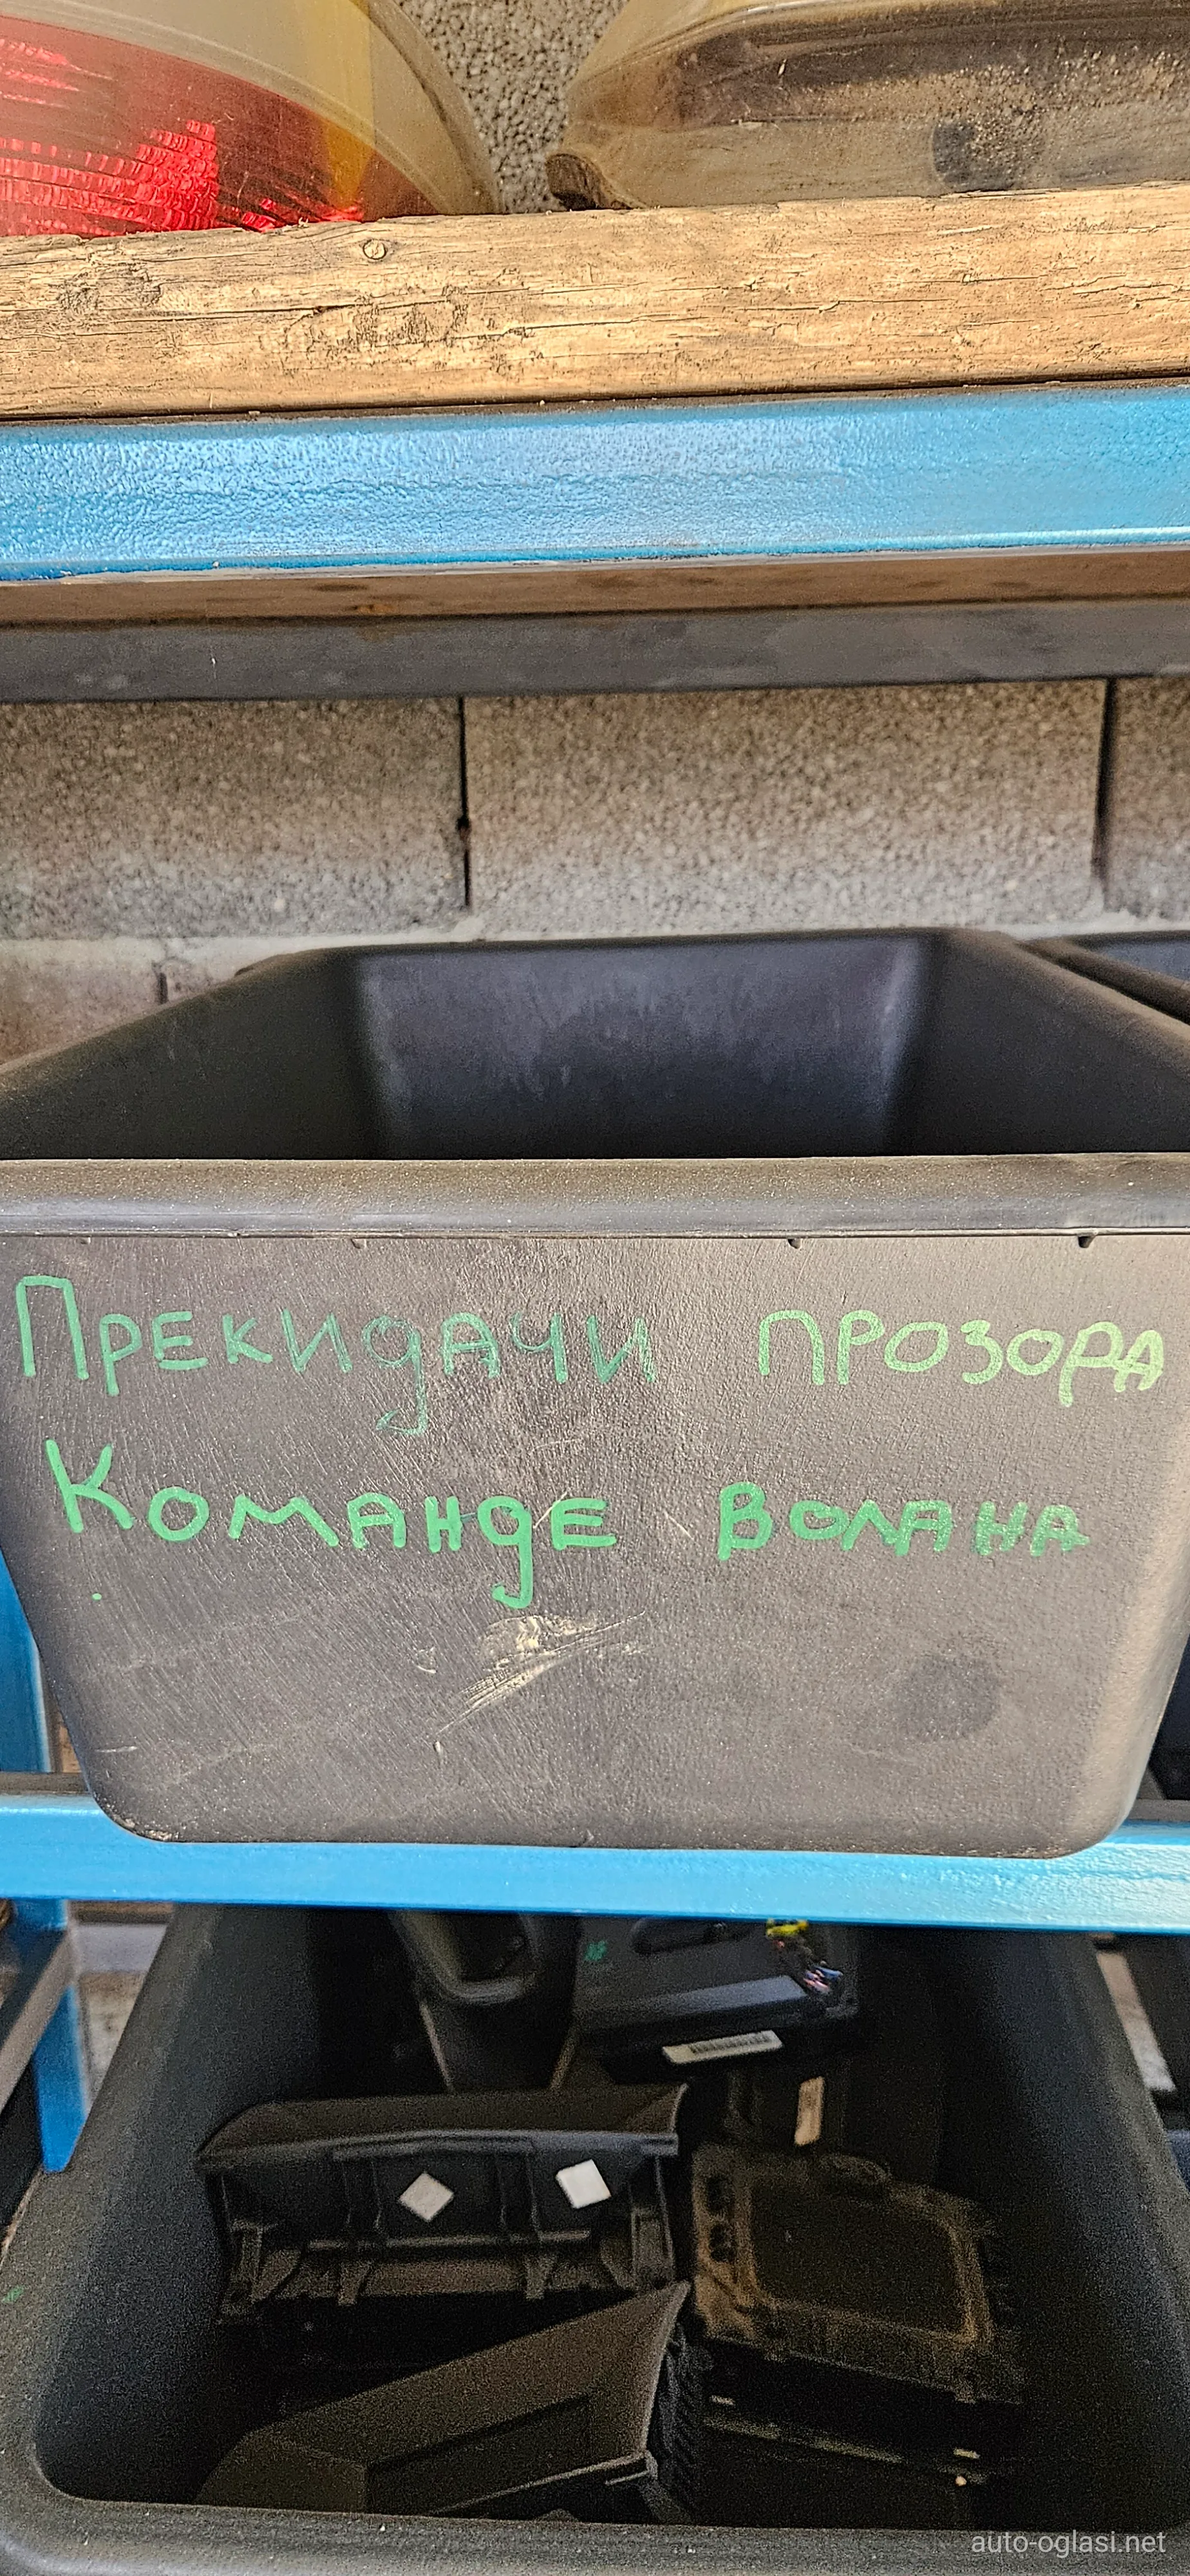 Прекидачи прозора
Команде волана
auto-oglasi.net